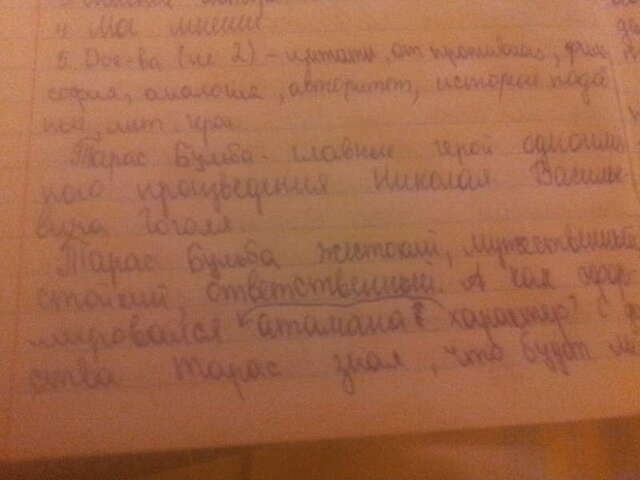 4. Мо
5. Док-ва (не 2) - цитаты, от противного, фило
софия, аналогия, авторитет, история
лит. герои
Тарас Бульба - главный герой одноимён
ного произведения Николая Василье
вича Гоголя.
Тарас Бульба жестокий, мужественный
стойкий, ответственный. А как фор
мировался атамана характер? С
ства Тарас знал, что будет